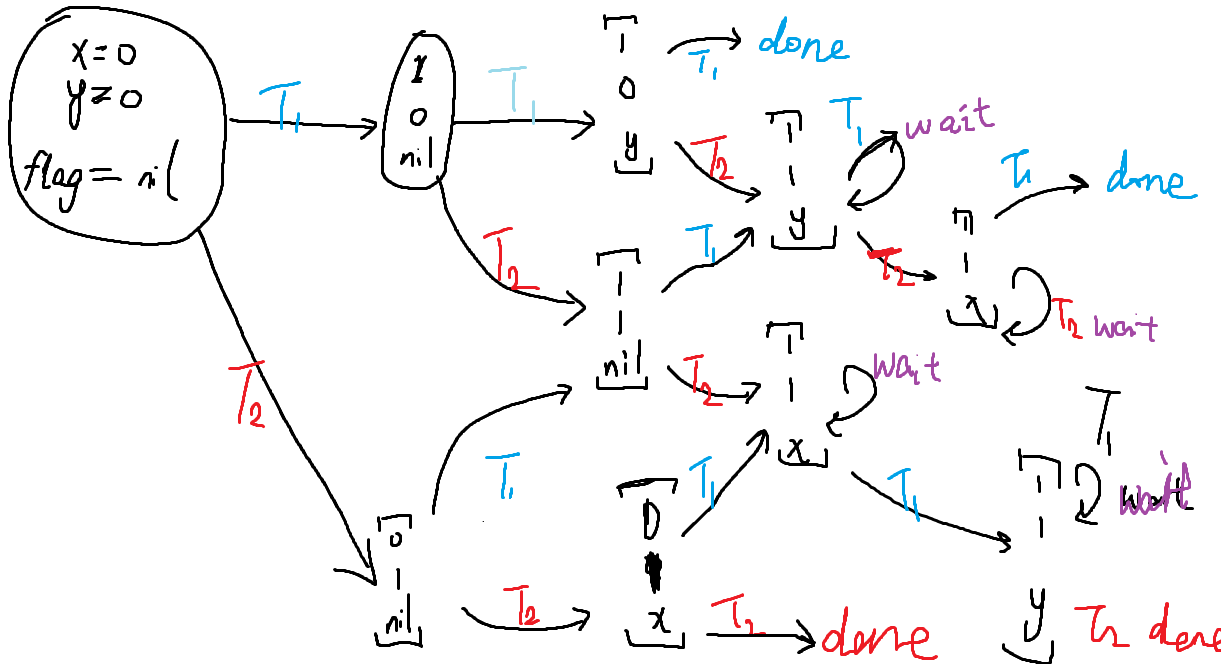 x=0
y=0
flag=nil
T1
1
0
nil
T1
1
0
y
T1
done
T2
1
1
y
T1
wait
T2
1
1
x
T1
done
T2 wait
T2
1
1
nil
T1
T2
1
1
x
wait
T1
1
1
y
T1
wait
T2 done
T2
0
1
nil
T1
T2
0
x
T1
T2
done